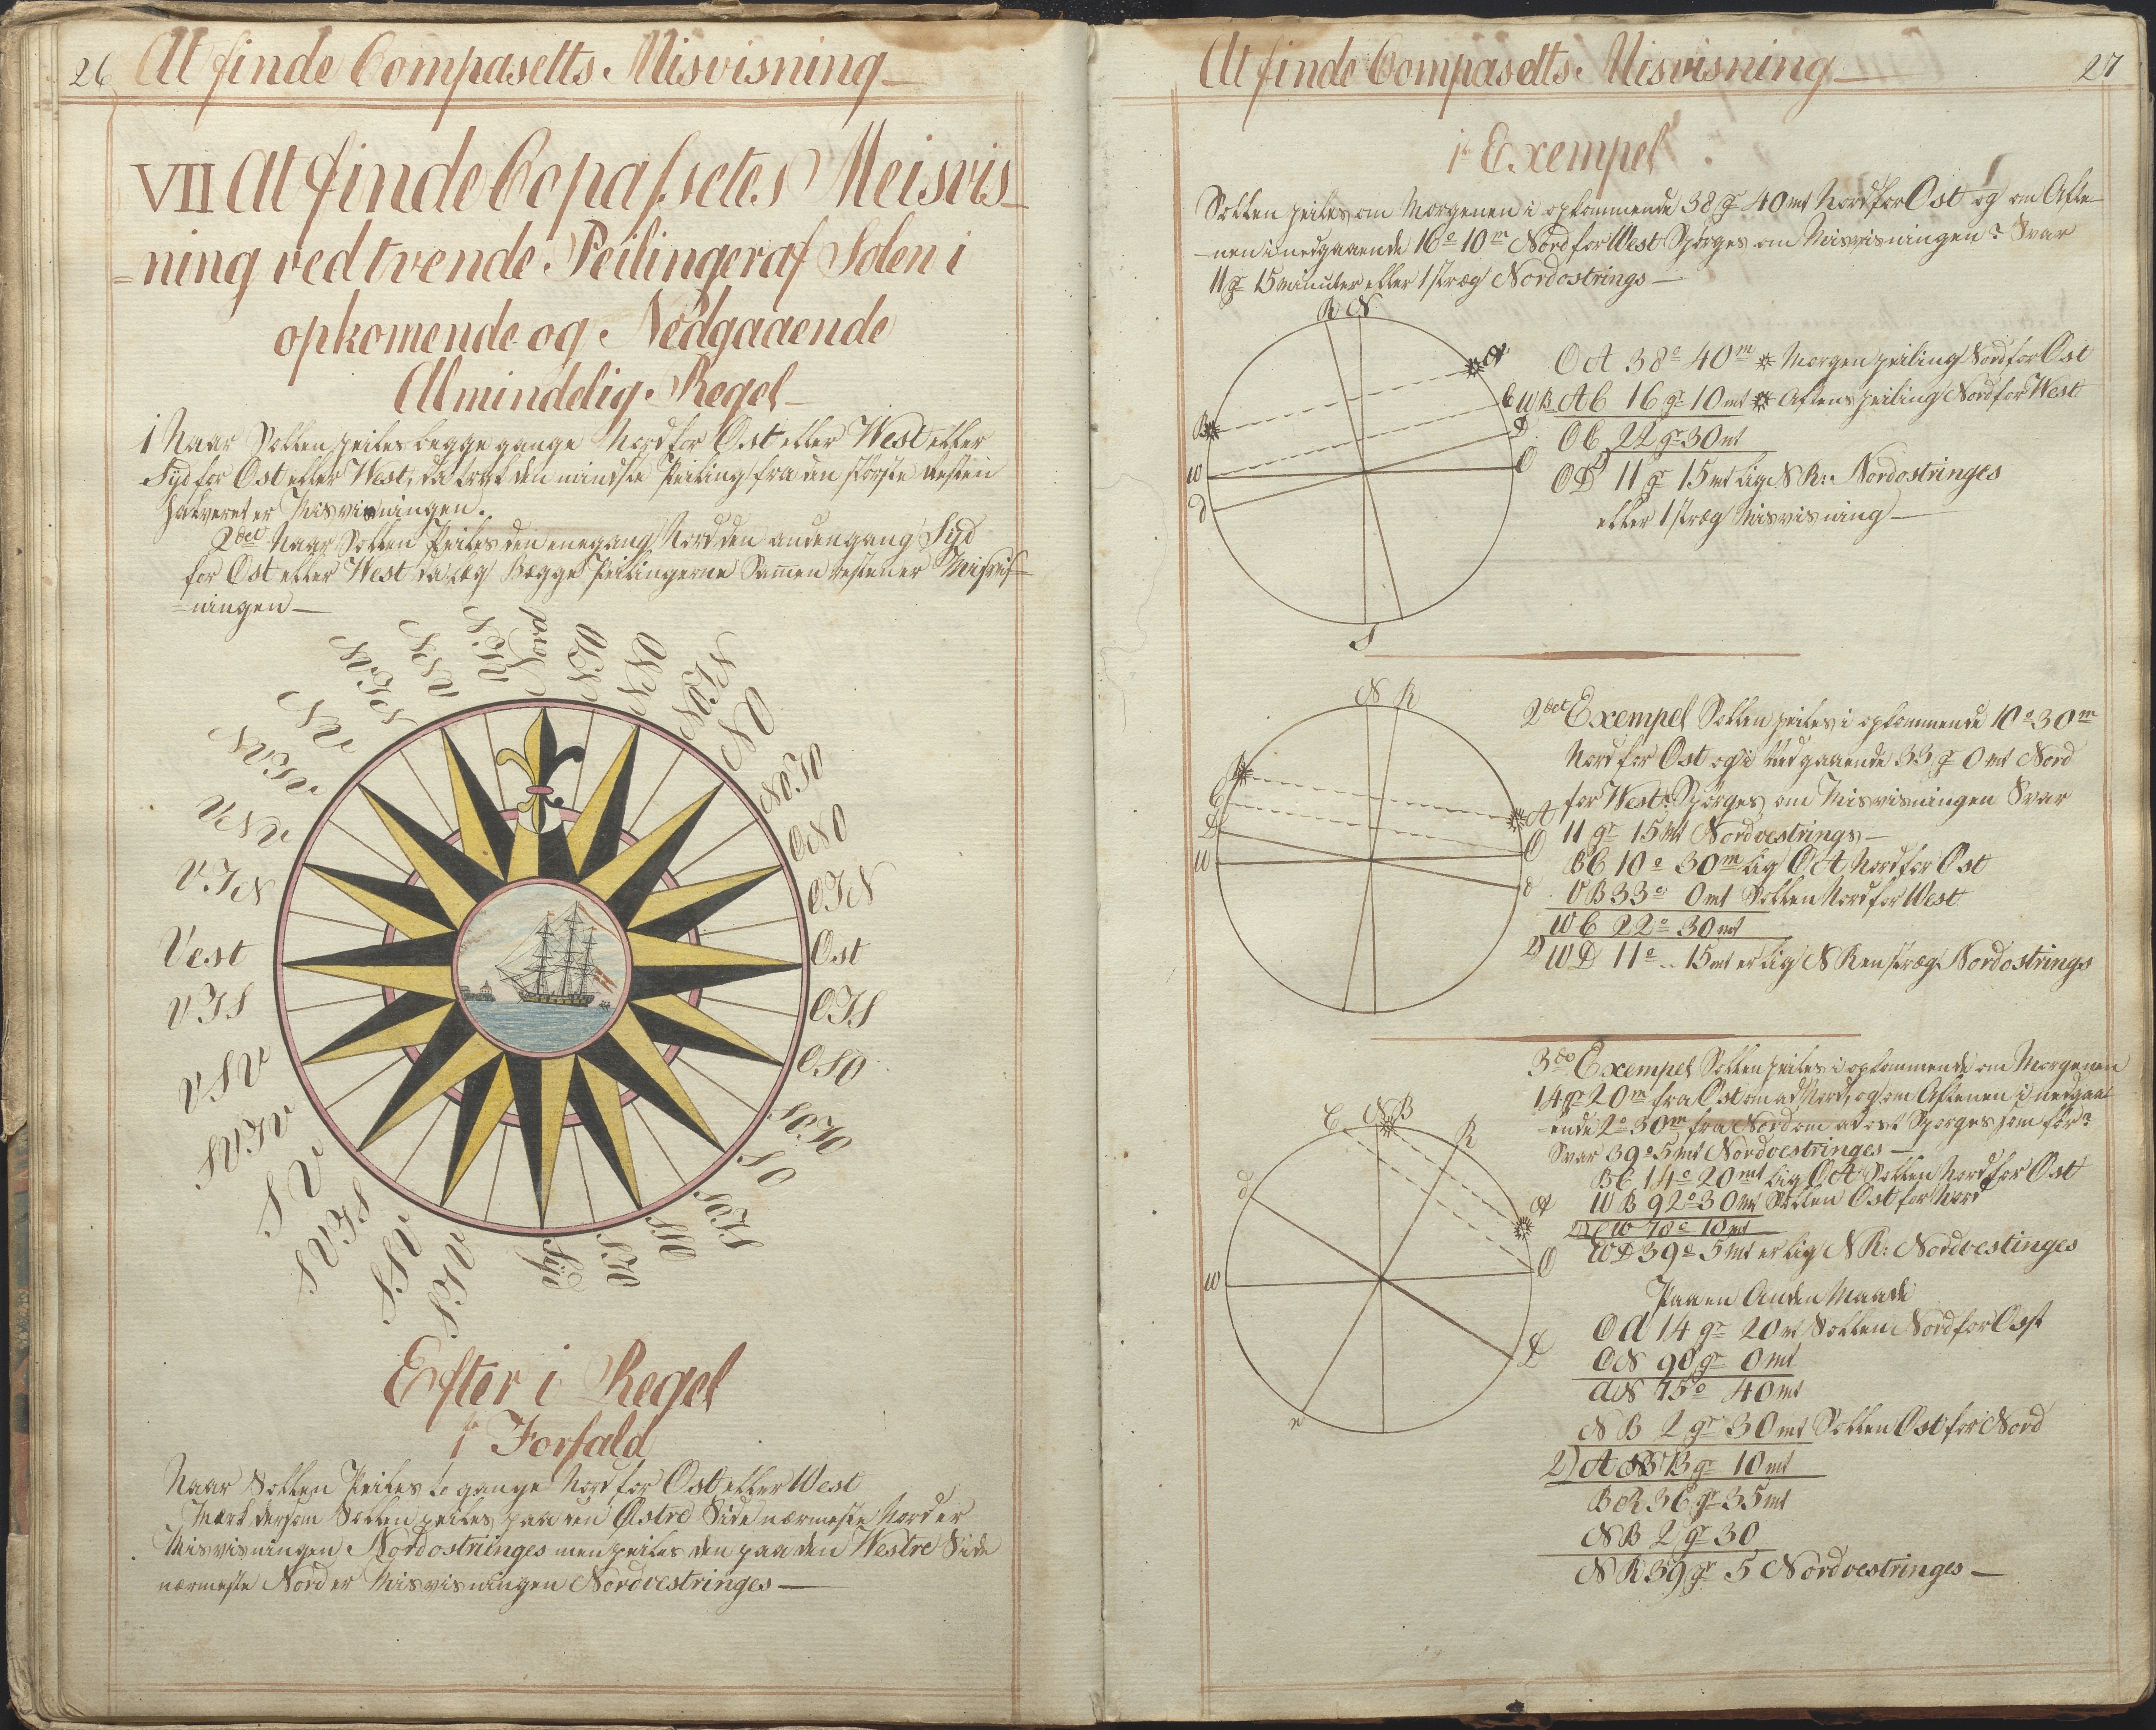 26 At finde Compasetts Misvisning
VII At finde Copassetes Meisvis
=ning ved tvende Peilinger af Solen i
opkomende og Nedgaaende
Almindelig Regel
1 Naar Sollen peiles begge gange Nord for Ost eller West eller
Syd for Ost eller West, da trekk den mindste Peiling fra den störste Resten
halveret er Misvisningen.
2det Naar Sollen Peiles den ene gang Nord den anden gang Syd
for Ost eller West da læg Begge Peilingerne Samen resten er Misvis
=ningen
Nord
NTO
NNO
NOTN
NO
NOTO
ONO
OTN
Ost
OTS
OSO
SOTO
SO
SOTS
SSO
STO
Syd
STV
SSV
SVTS
SV
SVTV
VSV
VTS
Vest
VTN
VNV
NVTV
NV
NVTN
NNV
NTV
Efter 1 Regel
1te Forfald
Naar Sollen Peiles to gange Nord for Ost eller West
Mærk dersom Sollen peiles paa den Östre Side nærmeste Nord er
Misvisningen Nordostringes men peiles den paa den Westre Side
nærmeste Nord er Misvisningen Nordvestringes
At finde Compasetts Misvisning 27
1te Exempel
Sollen peiles om Morgenen i opkommende 38 gr 40 mt Nord for Ost og om Afte
=nen i nedgaaende 16° 10m Nord for West Spörges om Misvisningen? Svar
11 gr 15 minuter eller 1 stræg Nordostrings
R N
A
C
D
O
B
W
d
S
OA 38° 40m Morgen peiling Nord for Ost
WB AC 16 gr 10 mt Aftens peiling Nord for West
OC 22 gr 30 mt
2) OD 11 gr 15 mt lig NR: Nordostringes
eller 1 stræg Misvisning
N R
B
C
D
W
A
O
d
2det Exempel Sollen peiles i opkommende 10° 30m
Nord for Ost og i Nedgaaende 33 gr 0 mt Nord
for West. Spörges om Misvisningen Svar
11 gr 15 Mt Nordvestrings
BC 10° 30m lig OA Nord for Ost
VB 33° 0 mt Sollen Nord for West
WC 22° 30 mt
2) WD 11° 15 mt er lig NR en stræg Nordostrings
C N B
R
d
A
O
W
D
3die Exempel Sollen peiles i opkommende om Morgenen
14 gr 20m fra Ost om ad Nord, og om Aftenen i nedgaa
=ende 2° 30m fra Nord om ad ost Sporges som för?
Svar 39° 5 mt Nordvestringes
BC 14° 20 mt lig OA Sollen Nord for Ost
WB 92° 30 mt Sollen Ost for Nord
2) CW 78° 10 mt
WD 39° 5 mt er lig NR: Nordvestinges
Paa en Anden Maade
Od 14 gr 20 m Sollen Nord for Ost
ON 90 gr 0 mt
AN 75° 40 mt
NB 2 gr 30 mt Sollen Ost for Nord
2) A B gr 10 mt
BR 36 gr 35 mt
NB 2 gr 30
NR 39 gr 5 Nordvestringes